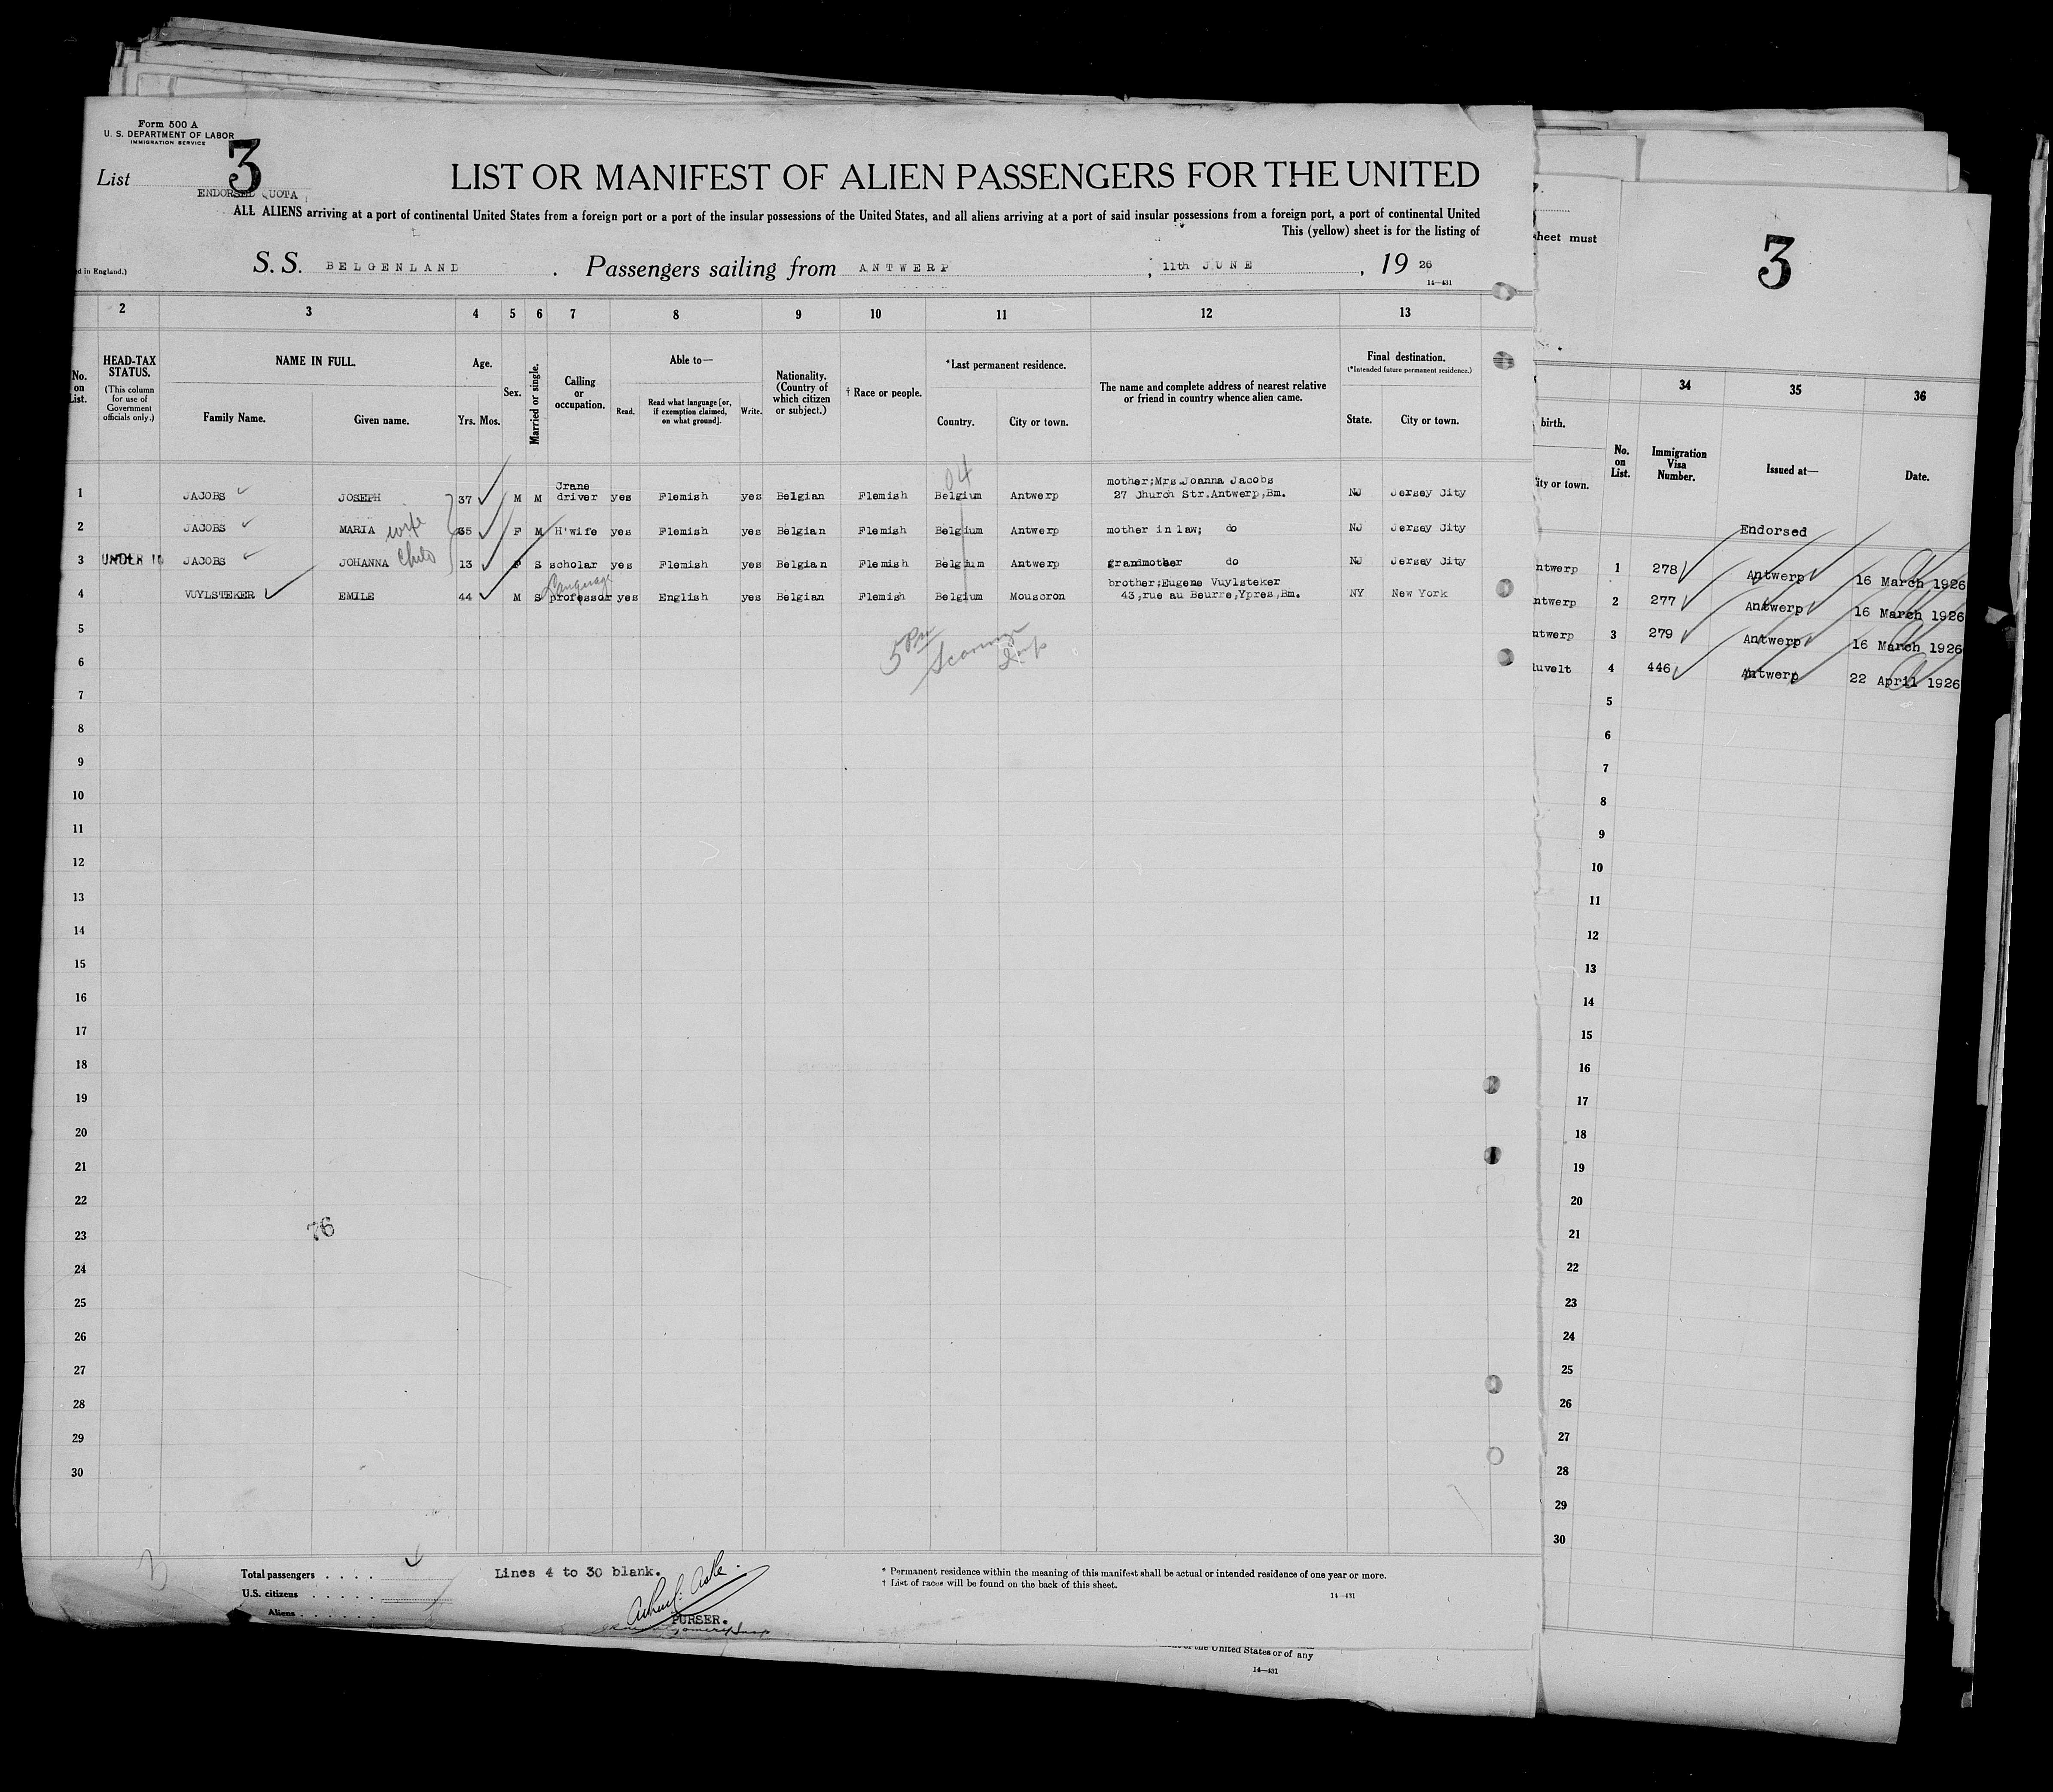 Form 500 A
U. S. DEPARTMENT OF LABOR
IMMIGRATION SERVICE
List 3
ENDORSED QUOTA
LIST OR MANIFEST OF ALIEN PASSENGERS FOR THE UNITED
ALL ALIENS arriving at a port of continental United States from a foreign port or a port of the insular possessions of the United States, and all aliens arriving at a port of said insular possessions from a foreign port, a port of continental United
This (yellow) sheet is for the listing of
d in England.)
S. S. BELGENLAND . Passengers sailing from ANTWERP , 11th JUNE , 19 26
14—431
2 3 4 5 6 7 8 9 10 11 12 13
No. on List.
HEAD-TAX STATUS.
(This column for use of Government officials only.)
NAME IN FULL.
Family Name. Given name.
Age.
Yrs. Mos.
Sex.
Married or single.
Calling or occupation.
Able to—
Read. Read what language [or, if exemption claimed, on what ground]. Write.
Nationality. (Country of which citizen or subject.)
† Race or people.
*Last permanent residence.
Country. City or town.
The name and complete address of nearest relative or friend in country whence alien came.
Final destination.
(*Intended future permanent residence.)
State. City or town.
04
1 JACOBS JOSEPH 37 M M Crane driver yes Flemish yes Belgian Flemish Belgium Antwerp mother;Mrs Joanna Jacobs 27 Church Str.Antwerp,Bm. NJ Jersey City
2 JACOBS MARIA wife 35 F M H'wife yes Flemish yes Belgian Flemish Belgium Antwerp mother in law; do NJ Jersey City
3 UNDER 16 JACOBS JOHANNA Child 13 F S scholar yes Flemish yes Belgian Flemish Belgium Antwerp grandmother do NJ Jersey City
4 VUYLSTEKER EMILE 44 M S Language professor yes English yes Belgian Flemish Belgium Mouscron brother;Eugene Vuylsteker 43,rue au Beurre,Ypres,Bm. NY New York
5
6
7
8
9
10
11
12
13
14
15
16
17
18
19
20
21
22
23
24
25
26
27
28
29
30
76
Total passengers . . . .
U.S. citizens . . . . .
Aliens . . . . . .
Lines 4 to 30 blank.
PURSER.
* Permanent residence within the meaning of this manifest shall be actual or intended residence of one year or more.
† List of races will be found on the back of this sheet.
14—431
of the United States or of any
14—431
sheet must
3
34 35 36
birth.
ity or town.
No. on List.
Immigration Visa Number.
Issued at—
Date.
Endorsed
ntwerp 1 278 Antwerp 16 March 1926
ntwerp 2 277 Antwerp 16 March 1926
ntwerp 3 279 Antwerp 16 March 1926
uvelt 4 446 Antwerp 22 April 1926
5
6
7
8
9
10
11
12
13
14
15
16
17
18
19
20
21
22
23
24
25
26
27
28
29
30